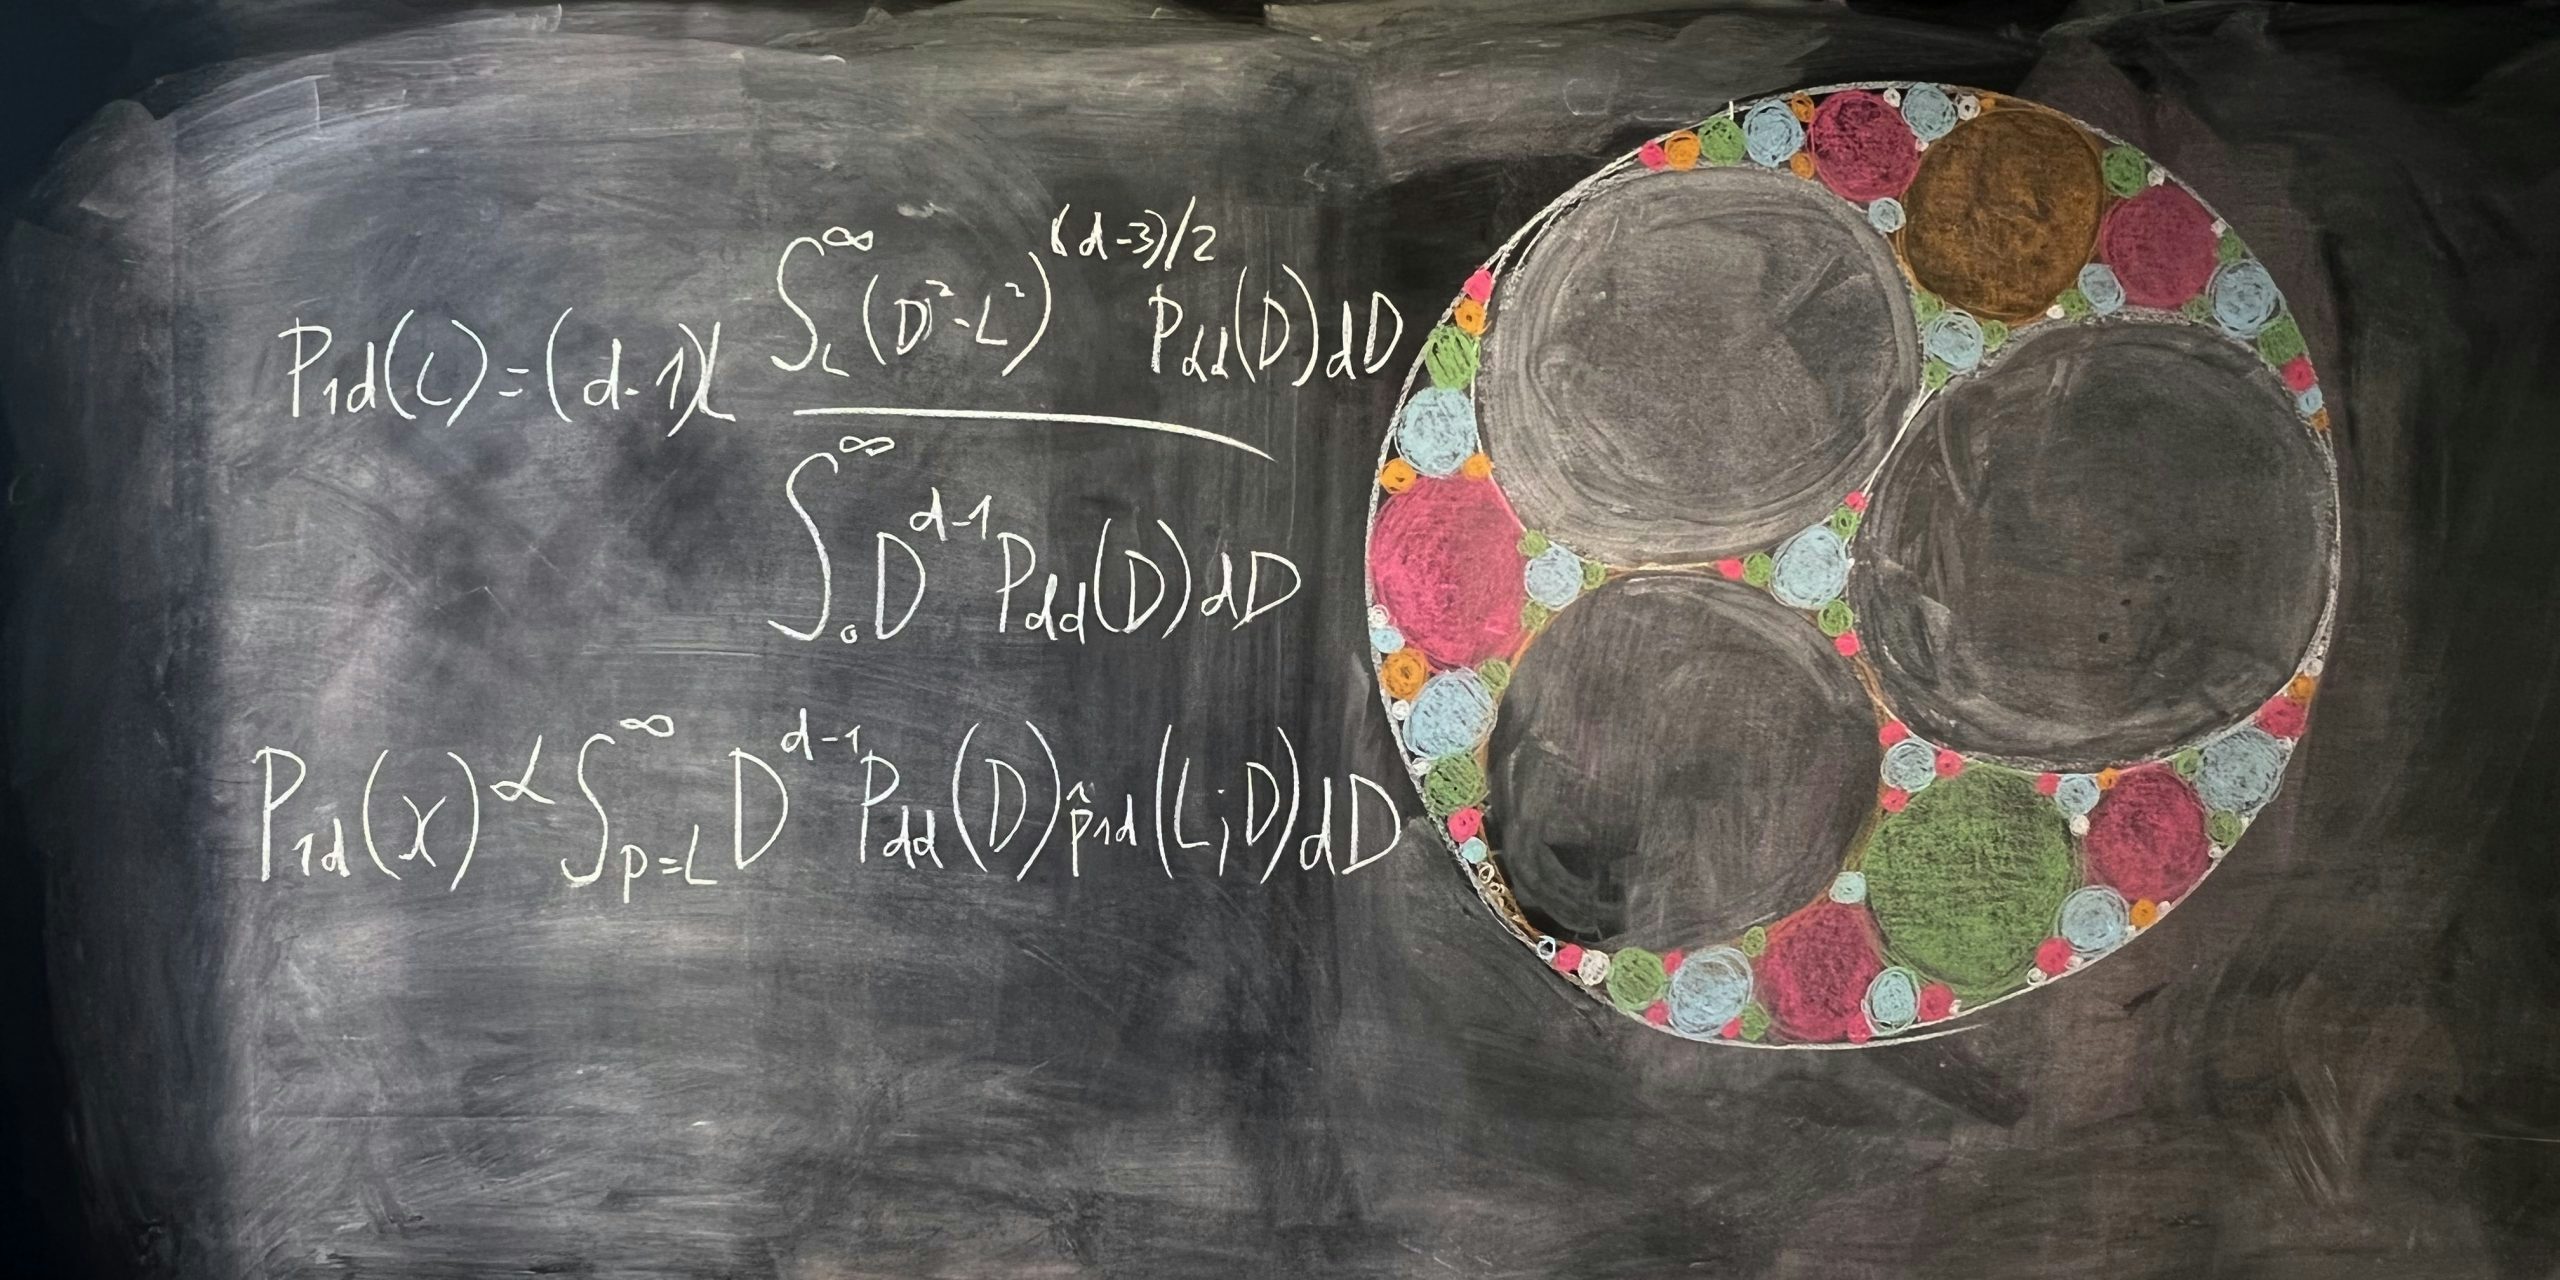 P₁d(L) = (d-1)L ∫_L^∞ (D²-L²)^((d-3)/2) P_dd(D)dD
∫_0^∞ D^(d-1) P_dd(D)dD
P₁d(x) ∝ ∫_(p=L)^∞ D^(d-1) P_dd(D) p̂₁d(L;D)dD